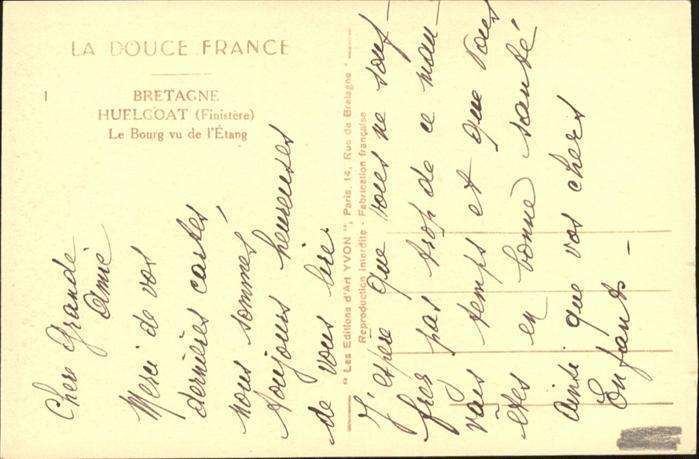 LA DOUCE FRANCE
1
BRETAGNE
HUELGOAT (Finistère)
Le Bourg vu de l'Étang
Chère Grande
Amie
Merci de vos
dernières cartes
nous sommes
toujours heureuses
de vous lire.
" Les Editions d'Art YVON ", Paris, 14, Rue de Bretagne -
Reproduction interdite - Fabrication française
J'espère que vous ne souf-
frez pas trop de ce mau-
vais temps et que vous
êtes en bonne santé
ainsi que vos chers
Enfants -